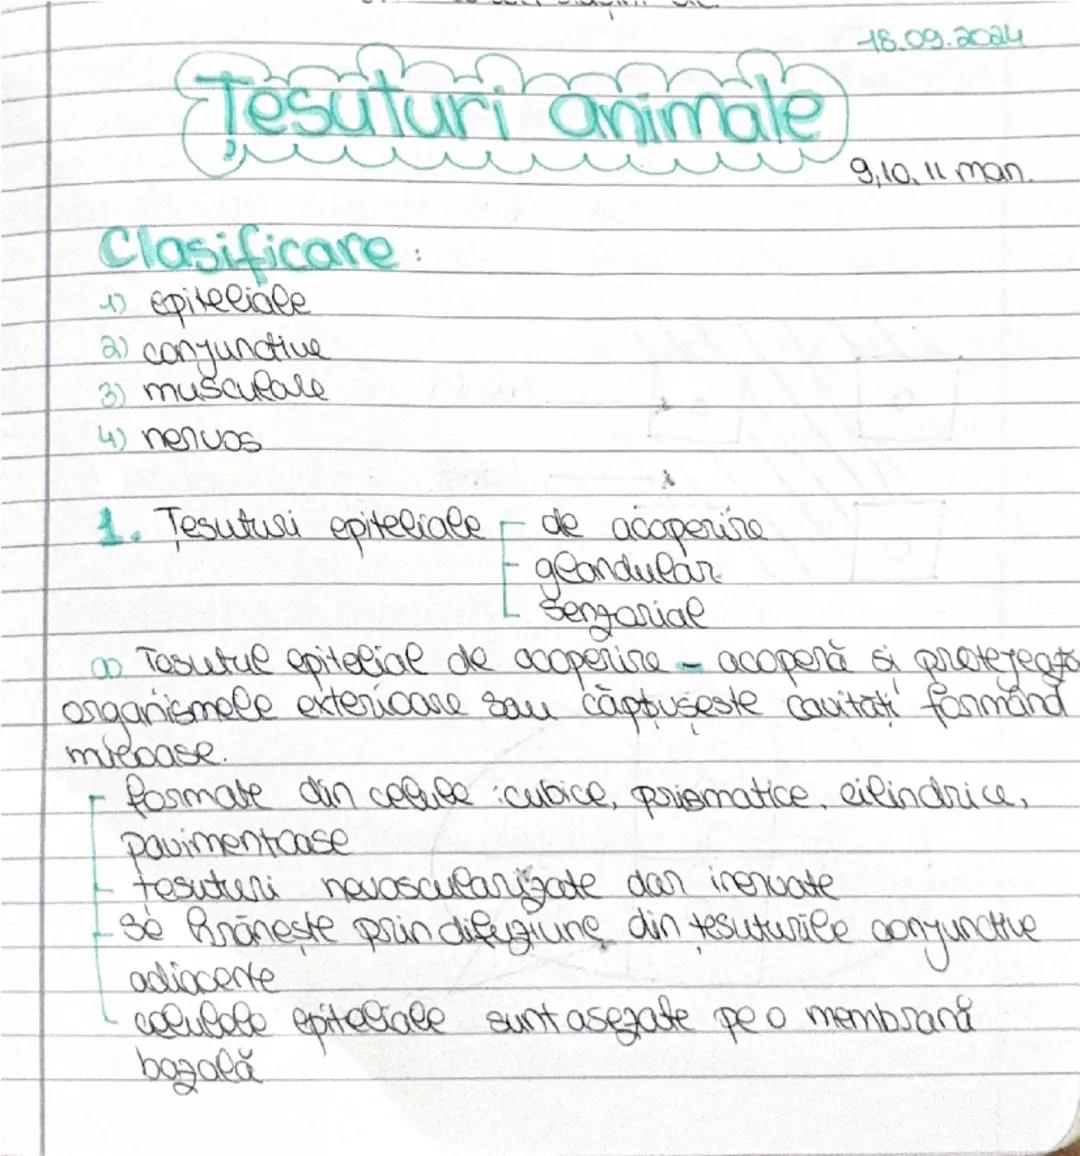 18.09.2024
Țesuturi animale
9,10,11 man.
Clasificare:
1) epiteliale
2) conjunctive
3) musculare
4) nervos
1. Țesuturi epiteliale de acoperire
glandular
senzorial
a) Țesutul epitelial de acoperire - acoperă și protejează
organismele exterioare sau căptușește cavităti formând
mucoase.
formate din celule: cubice, prismatice, cilindrice,
pavimentoase
țesuturi nevascularizate dar inervate
Se hrănește prin difuziune din țesuturile conjunctive
adiacente
celulele epiteliale sunt așezate pe o membrană
bazală